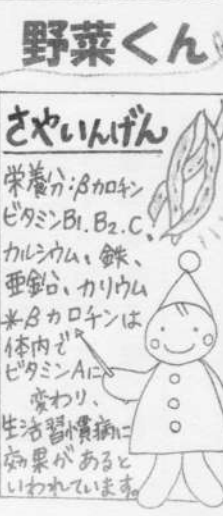 野菜くん
さやいんげん
栄養分:βカロチン
ビタミンB1.B2.C.
カルシウム、鉄、
亜鉛、カリウム
*βカロチンは
体内で
ビタミンAに
変わり、
生活習慣病に
効果があると
いわれています。